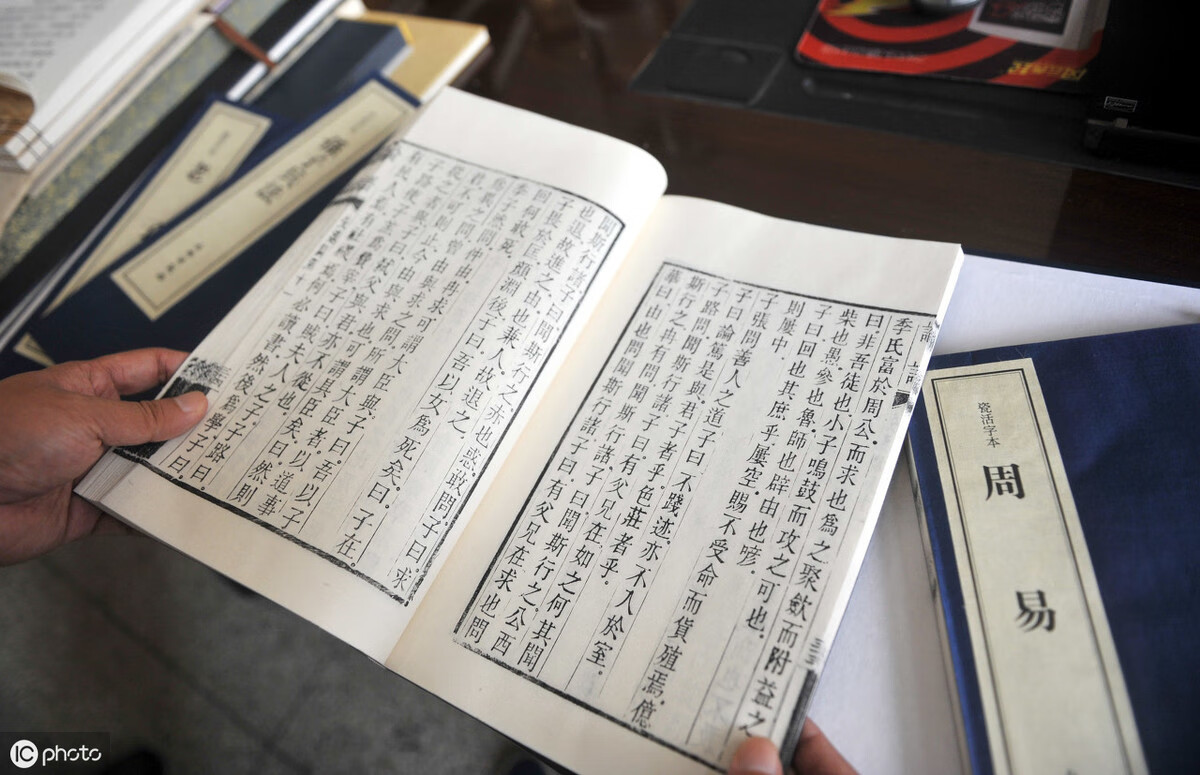 季氏富於周公。而求也爲之聚斂而附益之
曰非吾徒也小子鳴鼓而攻之可也。
柴也愚。參也魯。師也辟。由也喭。
子曰回也其庶乎屢空。賜不受命而貨殖焉。億
則屢中
子張問善人之道子曰不踐迹亦不入於室。
子曰論篤是與君子者乎。色莊者乎。
子路問聞斯行諸子曰有父兄在如之何其聞
斯行之冉有問聞斯行諸子曰聞斯行之公西
華曰由也問聞斯行諸子曰有父兄在求也問
聞斯行諸子曰聞斯行之赤也惑敢問子曰求
也退。故進之由也兼人故退之
子畏於匡顏淵後子曰吾以女爲死矣曰子在。
回何敢死
季子然問仲由冉求可謂大臣與子曰吾以子
爲異之問曾由與求之問所謂大臣者以道事
君不可則止今由與求也可謂具臣矣曰然則
從之者與子曰弑父與君亦不從也
子路使子羔爲費宰子曰賊夫人之子子路曰
有民人焉有社稷焉何必讀書然後爲學子曰
瓷活字本
周易
iC photo